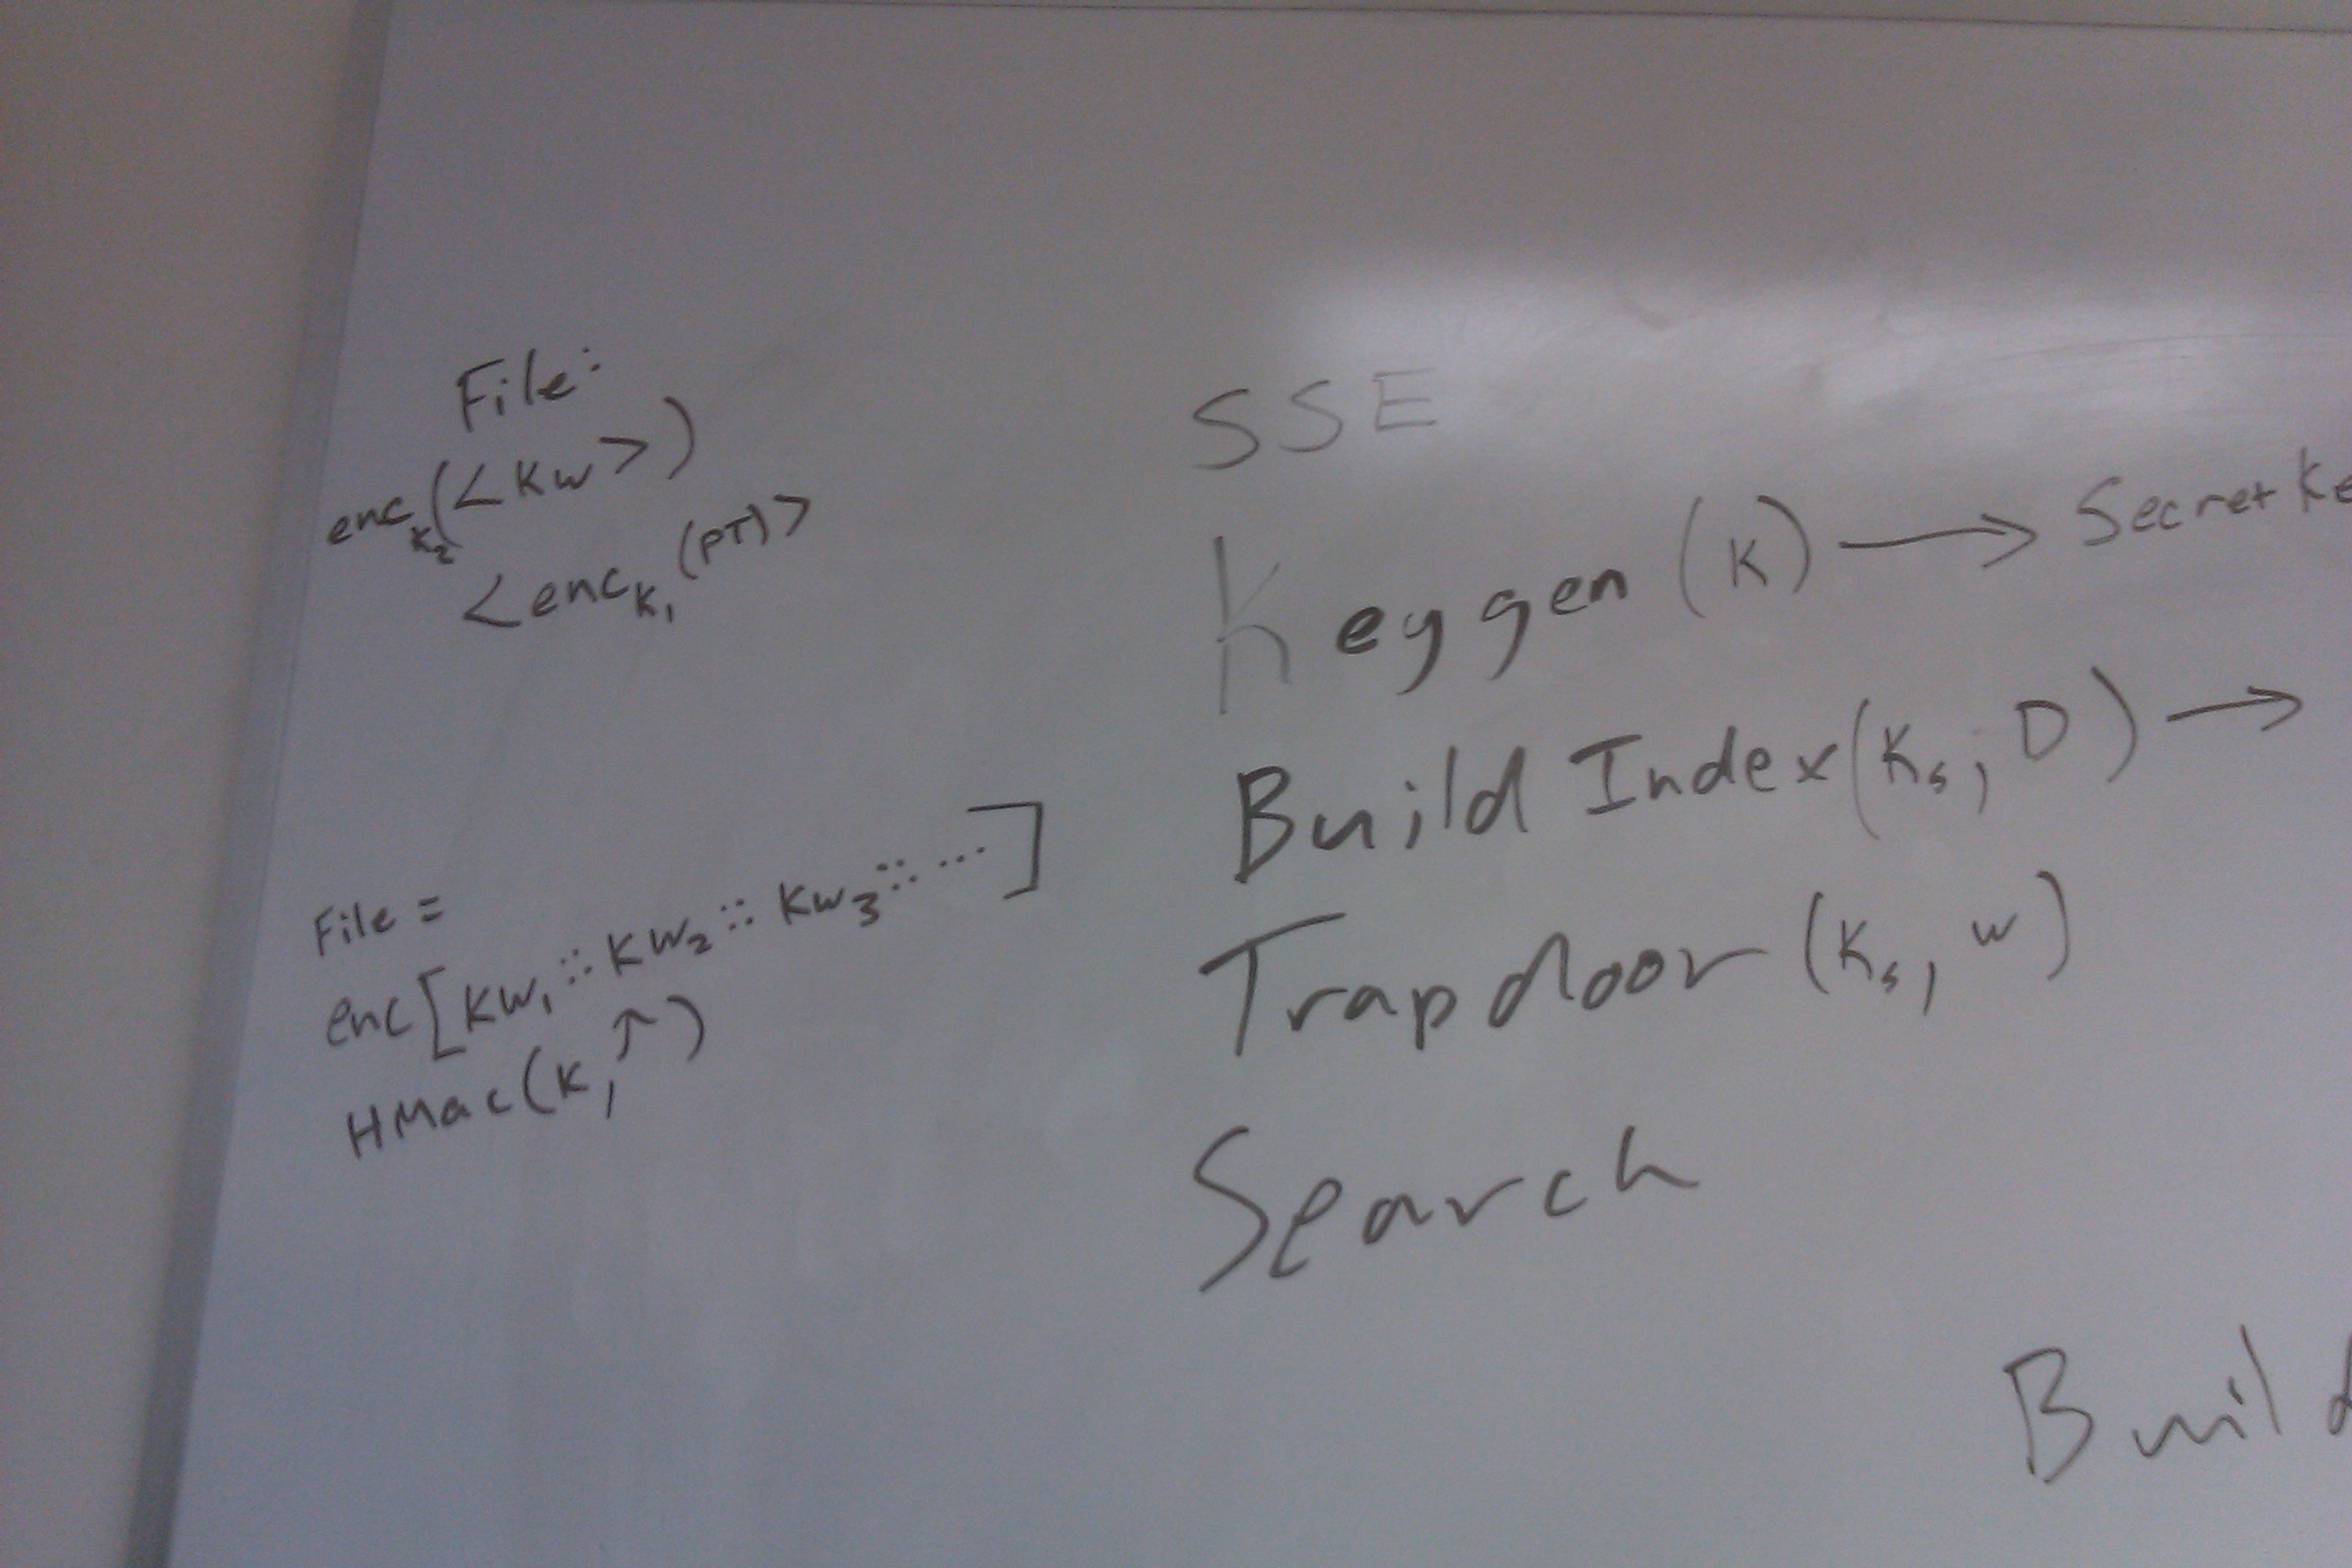 File:
enc K2 (<KW>)
<enc K1 (PT)>
File =
enc[KW1 :: KW2 :: KW3 :: ...]
HMac(K, ↑)
SSE
Keygen (K) → Secret Ke
Build Index(Ks, D) →
Trapdoor (Ks, w)
Search
Build